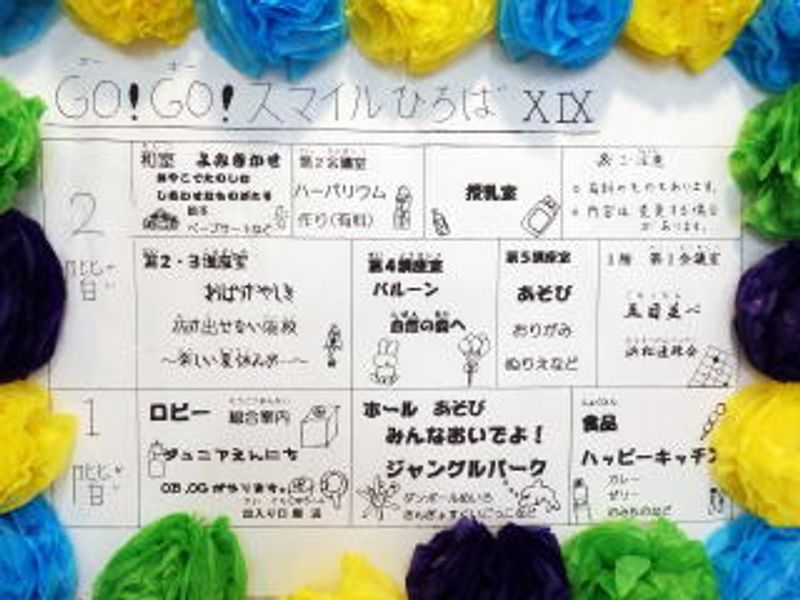 GO!GO!スマイルひろば XIX
2
階
和室 よみきかせ
絵本
ペープサートなど
第2会議室
ハーバリウム
作り(有料)
授乳室
※ご注意
○有料のものもあります。
○内容は変更する場合
があります。
第2・3講座室
おばけやしき
〜楽しい夏休み
第4講座室
バルーン
自然の森へ
第5講座室
あそび
おりがみ
ぬりえなど
1階 第1会議室
五目並べ
1
階
ロビー 総合案内
ジュニアえんにち
OB,OGがやります。
出入り口
ホール あそび
みんなおいでよ!
ジャングルパーク
ダンボールめいろ
食品
ハッピーキッチン
カレー
ゼリー
のみものなど